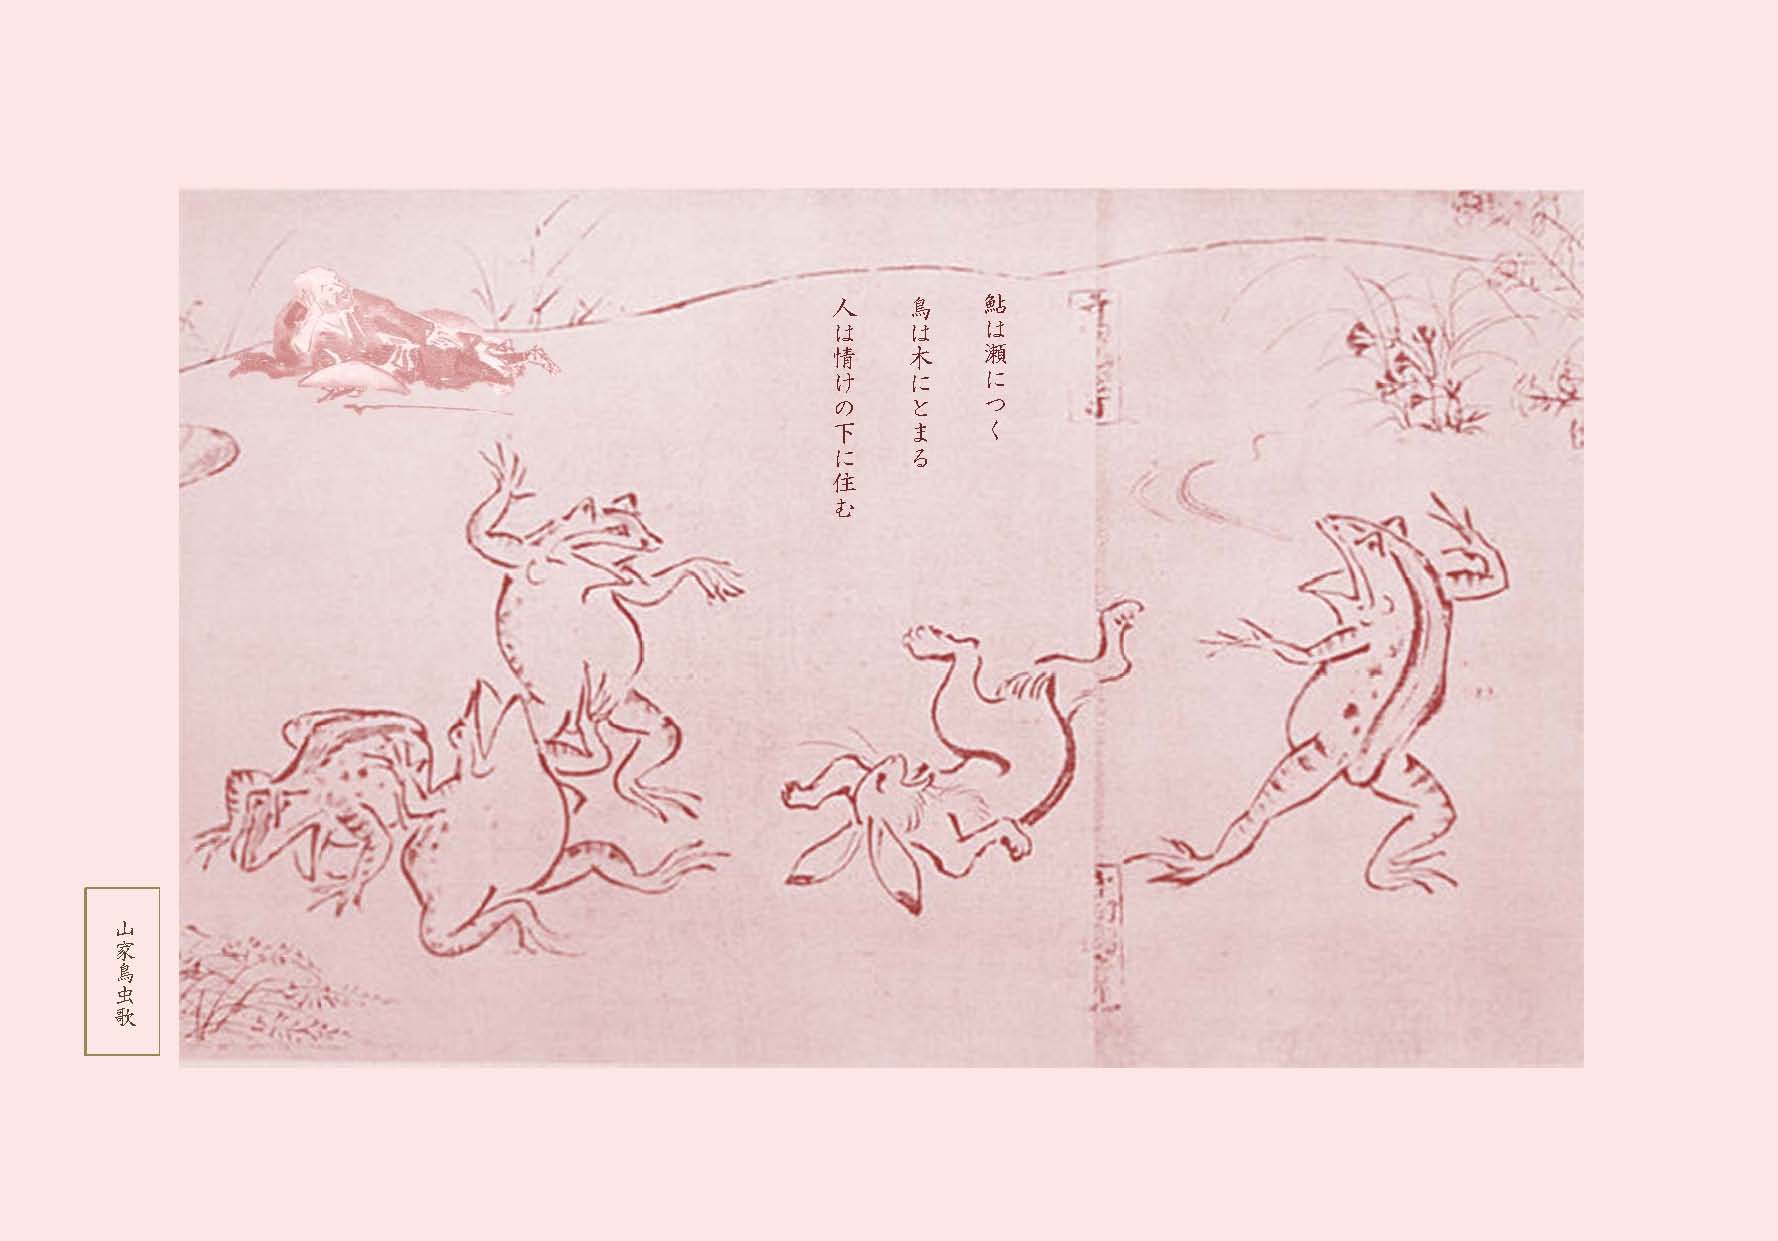 鮎は瀬につく
鳥は木にとまる
人は情けの下に住む
山家鳥虫歌